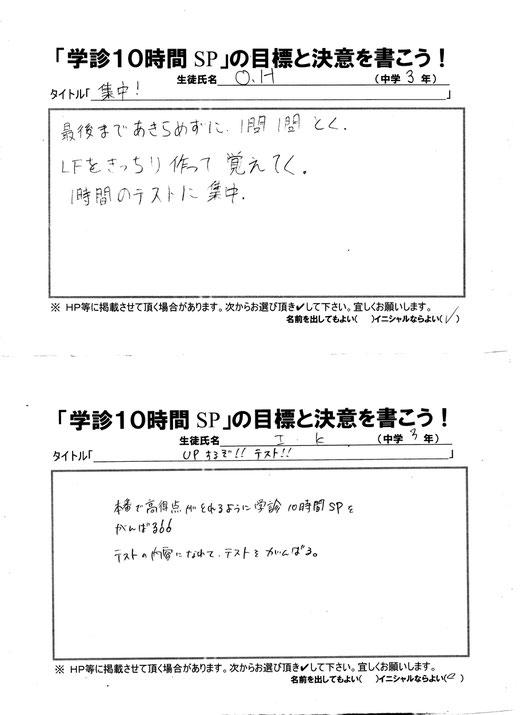 「学診10時間 SP」の目標と決意を書こう!
生徒氏名 O.H (中学 3 年)
タイトル「 集中! 」
最後まであきらめずに、1問1問とく.
LFをきっちり作って覚えてく.
1時間のテストに集中.
※ HP等に掲載させて頂く場合があります。次からお選び頂き✔して下さい。宜しくお願いします。
名前を出してもよい( )イニシャルならよい(✓)
「学診10時間 SP」の目標と決意を書こう!
生徒氏名 I.K (中学 3 年)
タイトル「 UPするぞ!! テスト!! 」
本番で高得点がとれるように学診10時間SPを
がんばる
テストの内容になれて、テストをがんばる。
※ HP等に掲載させて頂く場合があります。次からお選び頂き✔して下さい。宜しくお願いします。
名前を出してもよい( )イニシャルならよい( )